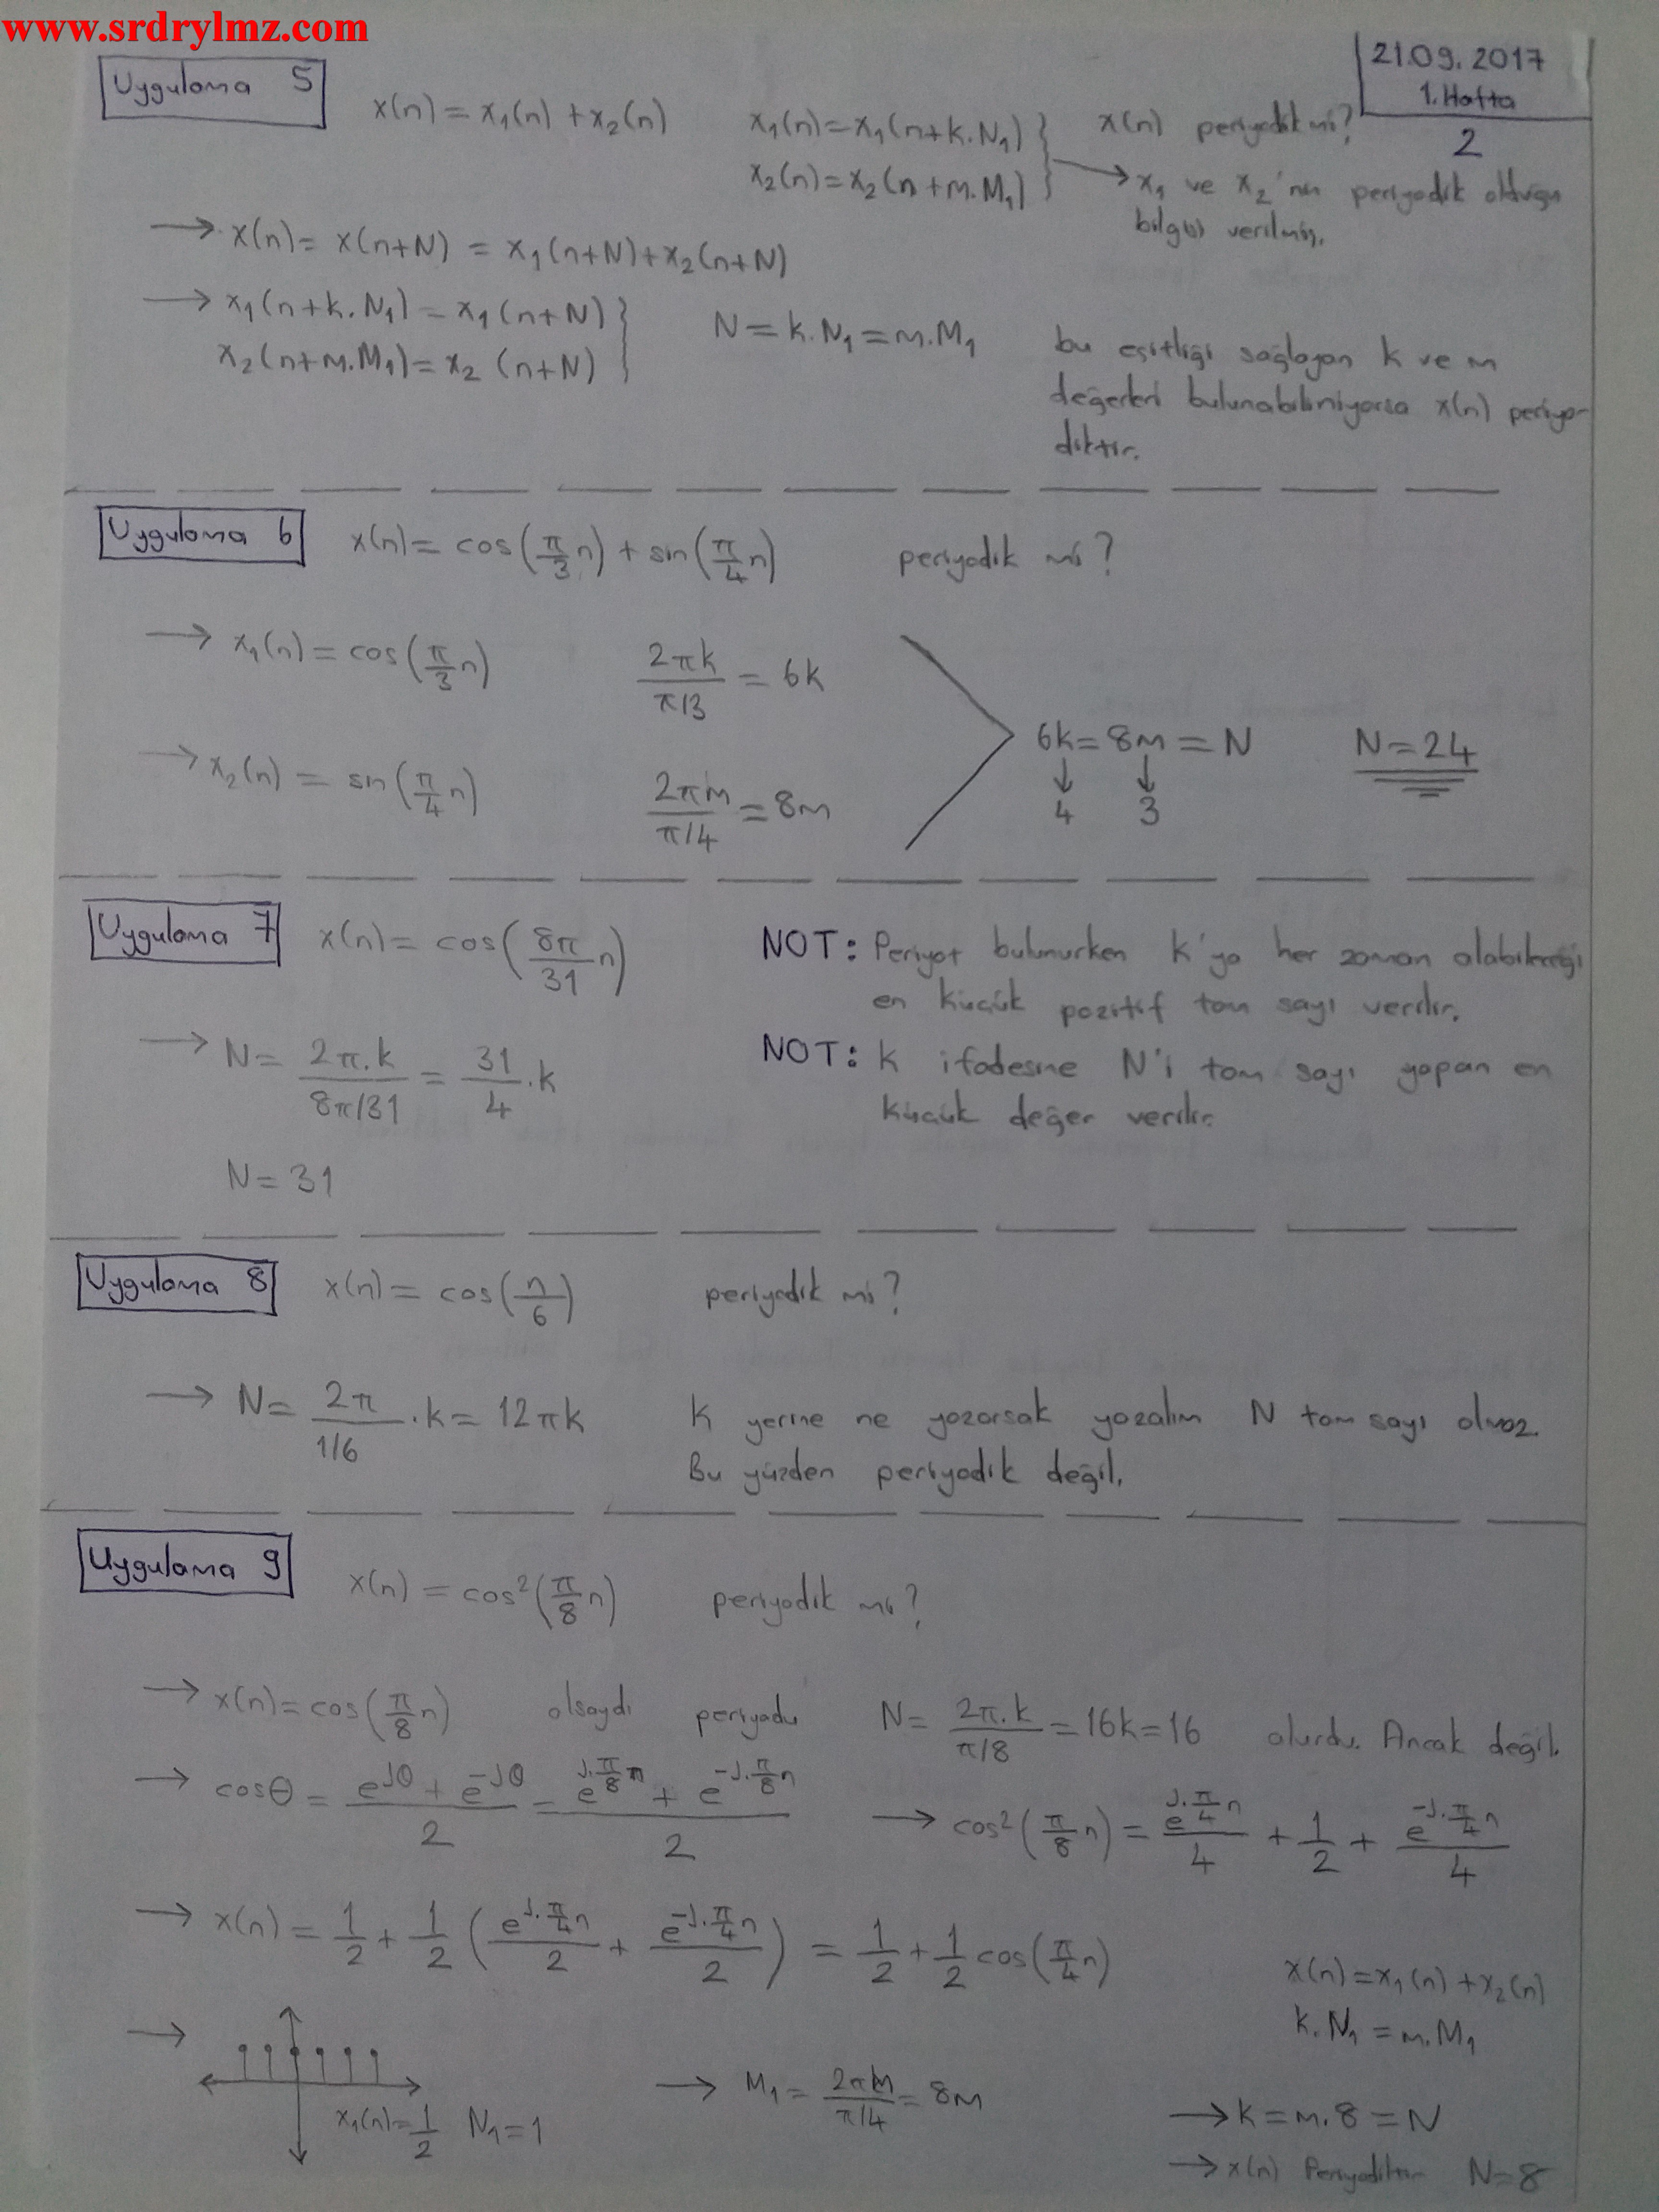 www.srdrylmz.com
21.09.2017
1. Hafta
2
Uygulama 5
x(n) = x₁(n) + x₂(n)
x₁(n) = x₁(n+k.N₁)
x₂(n) = x₂(n+m.M₁)
x(n) periyodik mi?
→ x₁ ve x₂'nin periyodik olduğu
bilgisi verilmiş.
→ x(n) = x(n+N) = x₁(n+N) + x₂(n+N)
→ x₁(n+k.N₁) = x₁(n+N)
x₂(n+m.M₁) = x₂(n+N)
N = k.N₁ = m.M₁
bu eşitliği sağlayan k ve m
değerleri bulunabiliniyorsa x(n) periyo-
diktir.
Uygulama 6
x(n) = cos(π/3 n) + sin(π/4 n) periyodik mi?
→ x₁(n) = cos(π/3 n) 2πk / π/3 = 6k
→ x₂(n) = sin(π/4 n) 2πm / π/4 = 8m
6k = 8m = N N = 24
↓ ↓
4 3
Uygulama 7
x(n) = cos(8π/31 n)
NOT: Periyot bulunurken k'ya her zaman alabileceği
en küçük pozitif tam sayı verilir.
→ N = 2π.k / 8π/31 = 31/4 .k
N = 31
NOT: k ifadesine N'i tam sayı yapan en
küçük değer verilir.
Uygulama 8
x(n) = cos(n/6) periyodik mi?
→ N = 2π / 1/6 .k = 12πk
k yerine ne yazarsak yazalım N tam sayı olmaz.
Bu yüzden periyodik değil.
Uygulama 9
x(n) = cos²(π/8 n) periyodik mi?
→ x(n) = cos(π/8 n) olsaydı periyodu N = 2π.k / π/8 = 16k = 16 olurdu. Ancak değil.
→ cosθ = (e^jθ + e^-jθ)/2 = (e^j.π/8 n + e^-j.π/8 n)/2
→ cos²(π/8 n) = e^j.π/4 n / 4 + 1/2 + e^-j.π/4 n / 4
→ x(n) = 1/2 + 1/2 (e^j.π/4 n / 2 + e^-j.π/4 n / 2) = 1/2 + 1/2 cos(π/4 n)
x(n) = x₁(n) + x₂(n)
k.N₁ = m.M₁
→ x₁(n) = 1/2 N₁ = 1
→ M₁ = 2πm / π/4 = 8m
→ k = m.8 = N
→ x(n) Periyodiktir N = 8